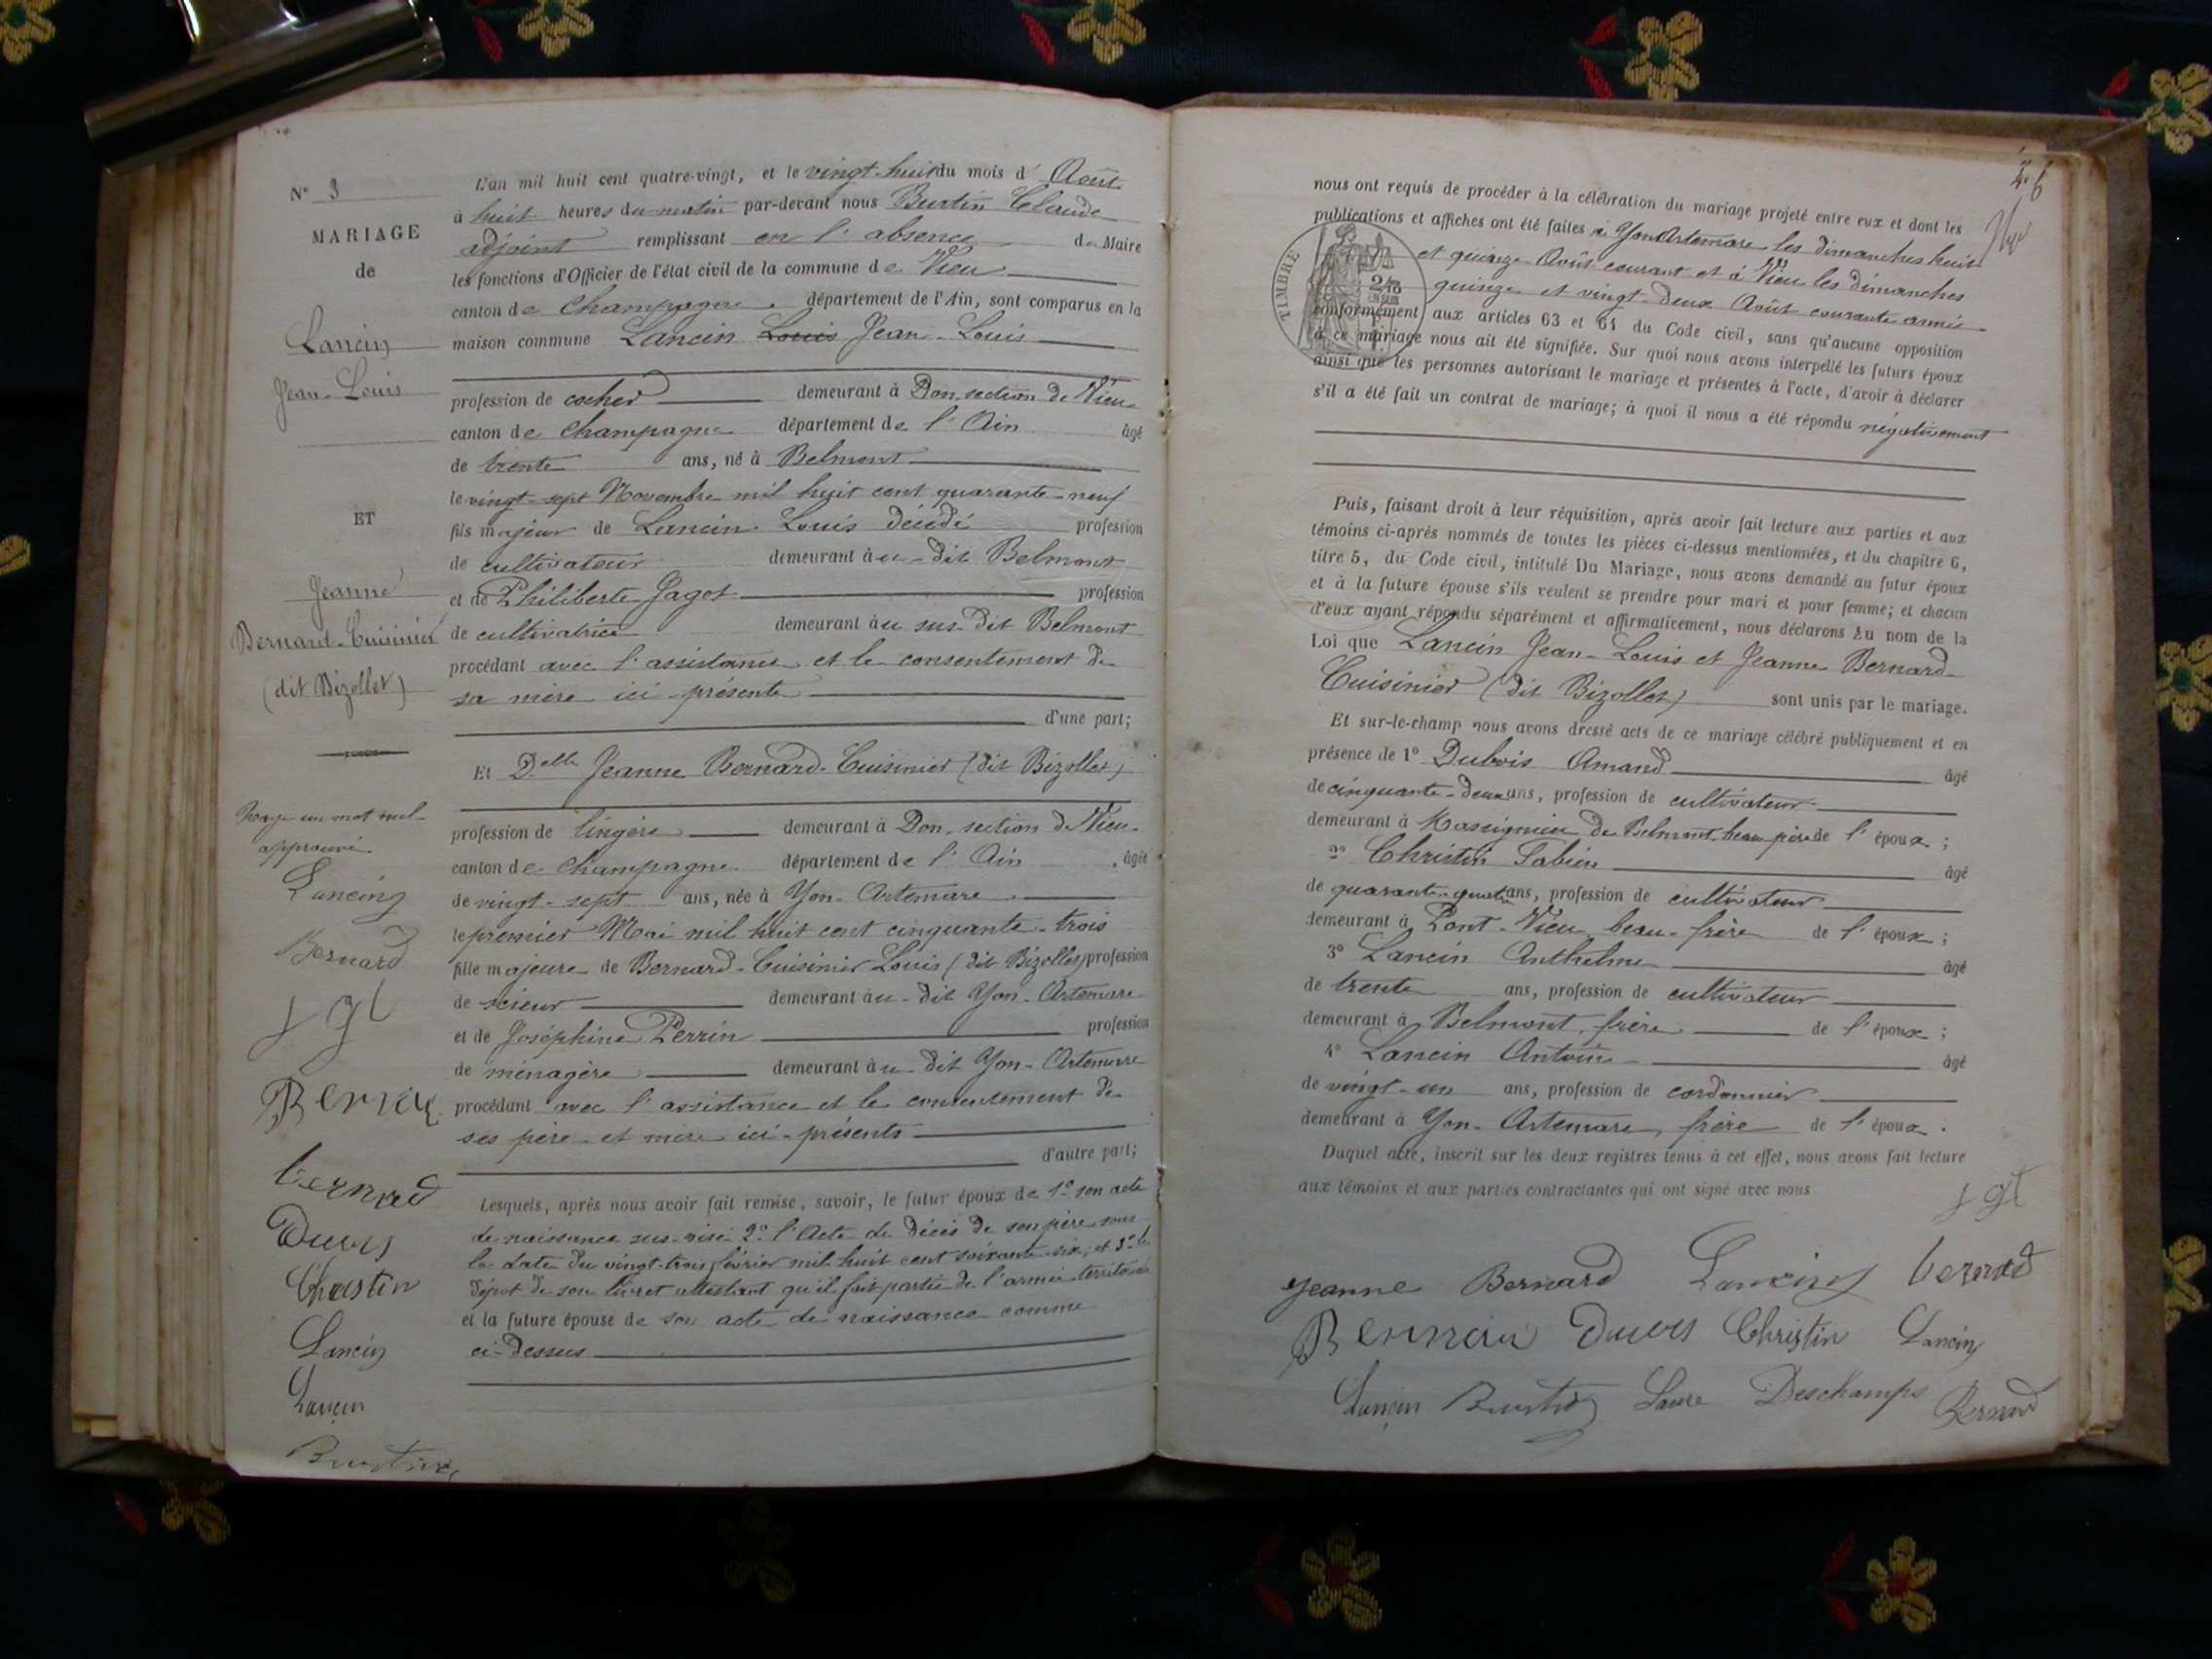 N° 3
MARIAGE
de
Lancin
Jean-Louis
ET
Jeanne
Bernard-Cuisinier
(dit Bizollet)
Rayé un mot nul
approuvé.
Lancin
Bernard
Bernard
Christin
Lancin
Lancin
Burtin
L'an mil huit cent quatre-vingt, et le vingt-huit du mois d' Août
à huit heures du matin par-devant nous Burtin Claude
adjoint remplissant en l'absence du Maire
les fonctions d'Officier de l'état civil de la commune de Vieu
canton de Champagne, département de l'Ain, sont comparus en la
maison commune Lancin Louis Jean-Louis
profession de cocher demeurant à Don, section de Vieu
canton de Champagne département de l'Ain âgé
de trente ans, né à Belmont
le vingt-sept Novembre mil huit cent quarante-neuf
fils majeur de Lancin Louis décédé profession
de cultivateur demeurant au-dit Belmont
et de Philiberte Gagot profession
de cultivatrice demeurant au sus-dit Belmont
procédant avec l'assistance et le consentement de
sa mère ici présente
d'une part;
Et Delle Jeanne Bernard-Cuisinier (dit Bizollet)
profession de lingère demeurant à Don, section de Vieu
canton de Champagne département de l'Ain, âgée
de vingt-sept ans, née à Yon-Artemare
le premier Mai mil huit cent cinquante-trois
fille majeure de Bernard-Cuisinier Louis (dit Bizollet) profession
de scieur demeurant au-dit Yon-Artemare
et de Joséphine Perrin profession
de ménagère demeurant au-dit Yon-Artemare
procédant avec l'assistance et le consentement de
ses père et mère ici-présents
d'autre part;
Lesquels, après nous avoir fait remise, savoir, le futur époux de 1° son acte
de naissance sus-visé 2° l'Acte de décès de son père sous
la date du vingt-trois février mil huit cent soixante-six; et 3° le
dépôt de son livret attestant qu'il fait partie de l'armée territoriale
et la future épouse de son acte de naissance comme
ci-dessus
nous ont requis de procéder à la célébration du mariage projeté entre eux et dont les
publications et affiches ont été faites à Yon Artemare les dimanches huit
et quinze Août courant et à Vieu les dimanches
quinze et vingt-deux Août courante année
conformément aux articles 63 et 64 du Code civil, sans qu'aucune opposition
à ce mariage nous ait été signifiée. Sur quoi nous avons interpellé les futurs époux
ainsi que les personnes autorisant le mariage et présentes à l'acte, d'avoir à déclarer
s'il a été fait un contrat de mariage; à quoi il nous a été répondu négativement
TIMBRE
Puis, faisant droit à leur réquisition, après avoir fait lecture aux parties et aux
témoins ci-après nommés de toutes les pièces ci-dessus mentionnées, et du chapitre 6,
titre 5, du Code civil, intitulé Du Mariage, nous avons demandé au futur époux
et à la future épouse s'ils veulent se prendre pour mari et pour femme; et chacun
d'eux ayant répondu séparément et affirmativement, nous déclarons au nom de la
Loi que Lancin Jean-Louis et Jeanne Bernard-
Cuisinier (dit Bizollet) sont unis par le mariage.
Et sur-le-champ nous avons dressé acte de ce mariage célébré publiquement et en
présence de 1° Dubois Amand âgé
de cinquante-deux ans, profession de cultivateur
demeurant à Massignieu de Belmont beau père de l'époux;
2° Christin Fabien âgé
de quarante-quatre ans, profession de cultivateur
demeurant à Pont-Vieu, beau-frère de l'époux;
3° Lancin Anthelme âgé
de trente ans, profession de cultivateur
demeurant à Belmont, frère de l'époux;
4° Lancin Antoine âgé
de vingt-un ans, profession de cordonnier
demeurant à Yon-Artemare, frère de l'époux.
Duquel acte, inscrit sur les deux registres tenus à cet effet, nous avons fait lecture
aux témoins et aux parties contractantes qui ont signé avec nous
Jeanne Bernard Lancin Bernard
Christin Lancin
Lancin Burtin Laure Deschamps Bernard